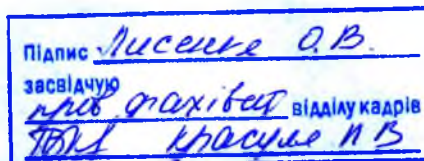 Підпис Лисенке О.В.
засвідчую
пров фахівец відділу кадрів
Красуле Н В